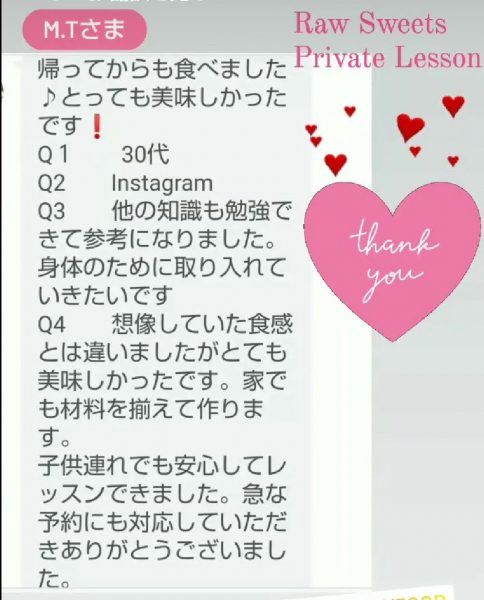 M.Tさま
Raw Sweets
Private Lesson
帰ってからも食べました
♪とっても美味しかった
です❗
Q1 30代
Q2 Instagram
Q3 他の知識も勉強で
きて参考になりました。
身体のために取り入れて
いきたいです
Q4 想像していた食感
とは違いましたがとても
美味しかったです。家で
も材料を揃えて作りま
す。
子供連れでも安心してレ
ッスンできました。急な
予約にも対応していただ
きありがとうございまし
た。
thank
you